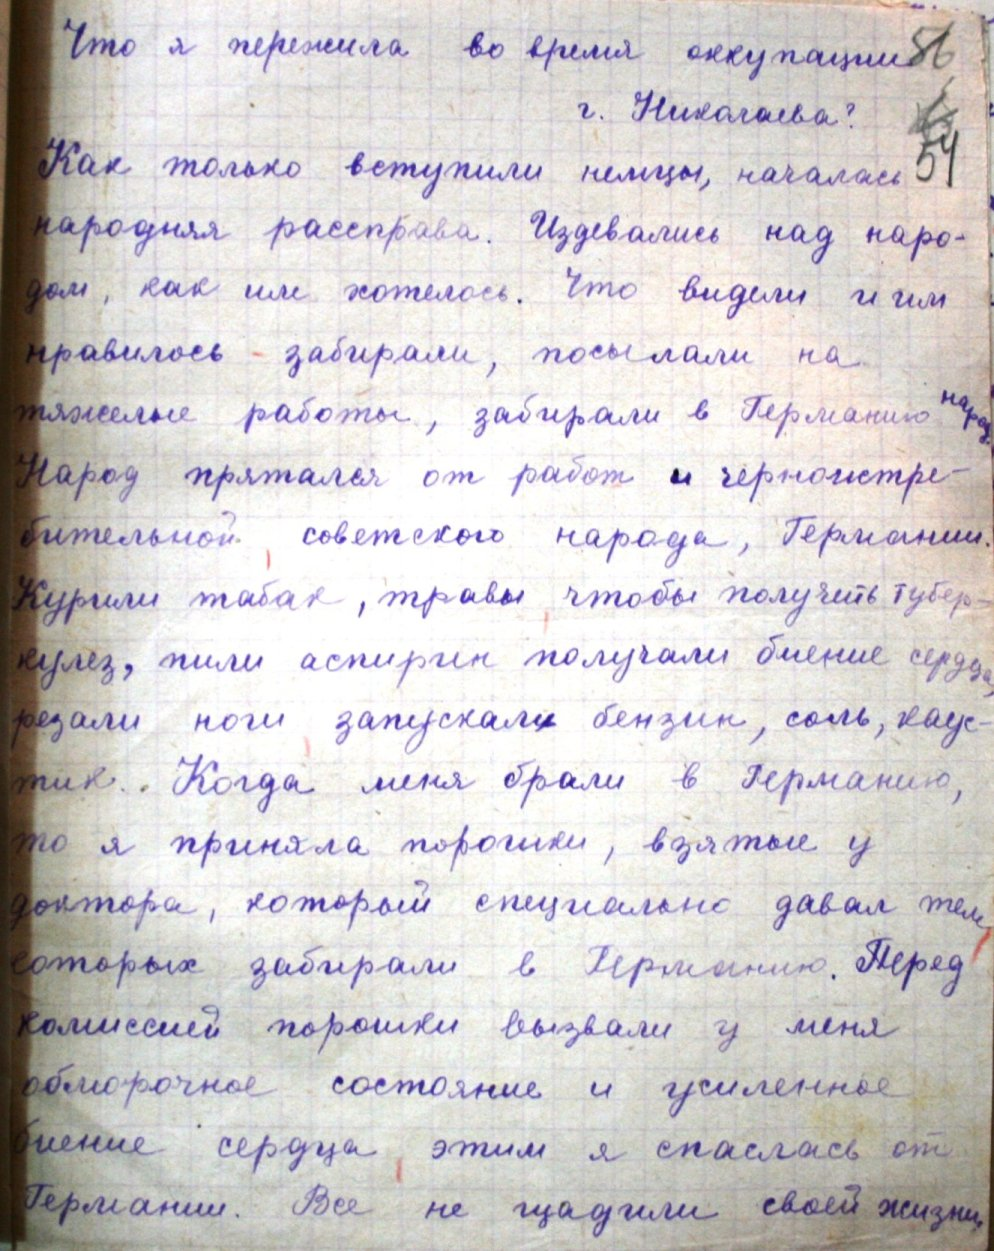 Что я пережила во время оккупации 56
г. Николаева?
54
Как только вступили немцы, началась
народняя рассправа. Издевались над наро-
дом, как им хотелось. Что видели и им
нравилось - забирали, посылали на
тяжелые работы, забирали в Германию народ.
Народ прятался от работ и черноистре-
бительной советского народа, Германии.
Курили табак, травы чтобы получить тубер-
кулез, пили аспирин получали биение сердца,
резали ноги запускали бензин, соль, каус-
тик. Когда меня брали в Германию,
то я приняла порошки, взятые у
доктора, который специально давал тем
которых забирали в Германию. Перед
комиссией порошки вызвали у меня
обморочное состояние и усиленное
биение сердца этим я спаслась от
Германии. Все не щадили своей жизни,